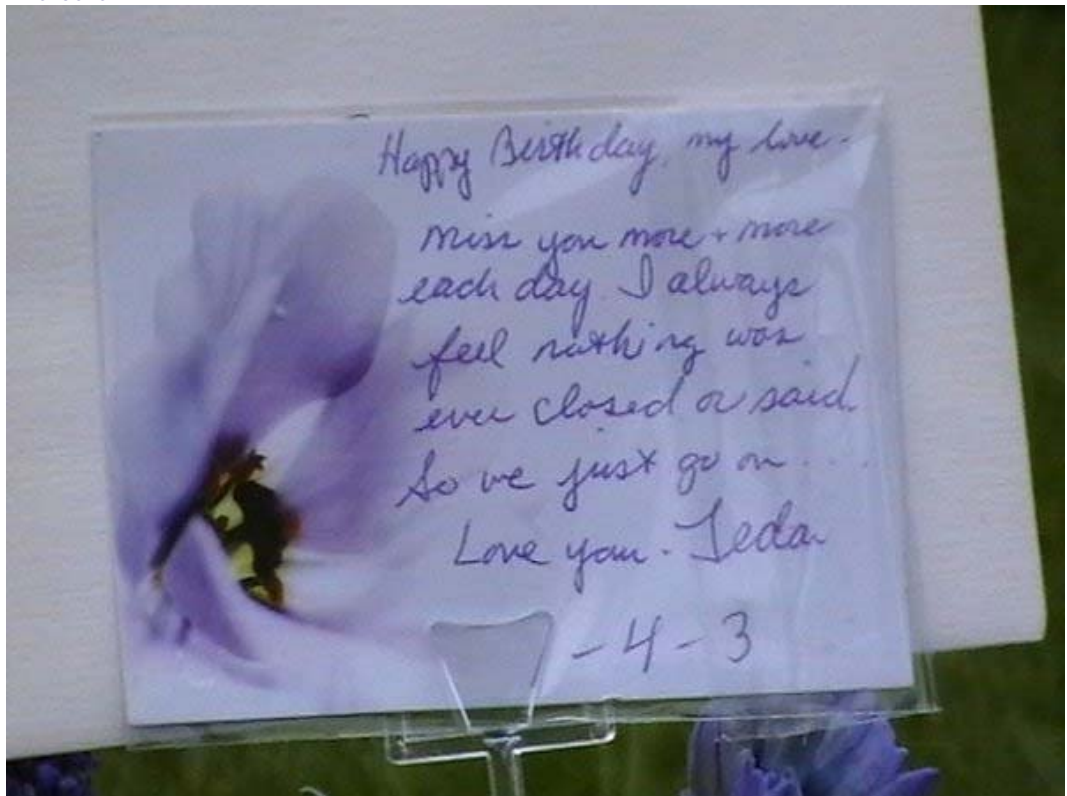 Happy Birthday, my love.
miss you more + more
each day. I always
feel nothing was
ever closed or said.
So we just go on....
Love you. Teda
-4-3